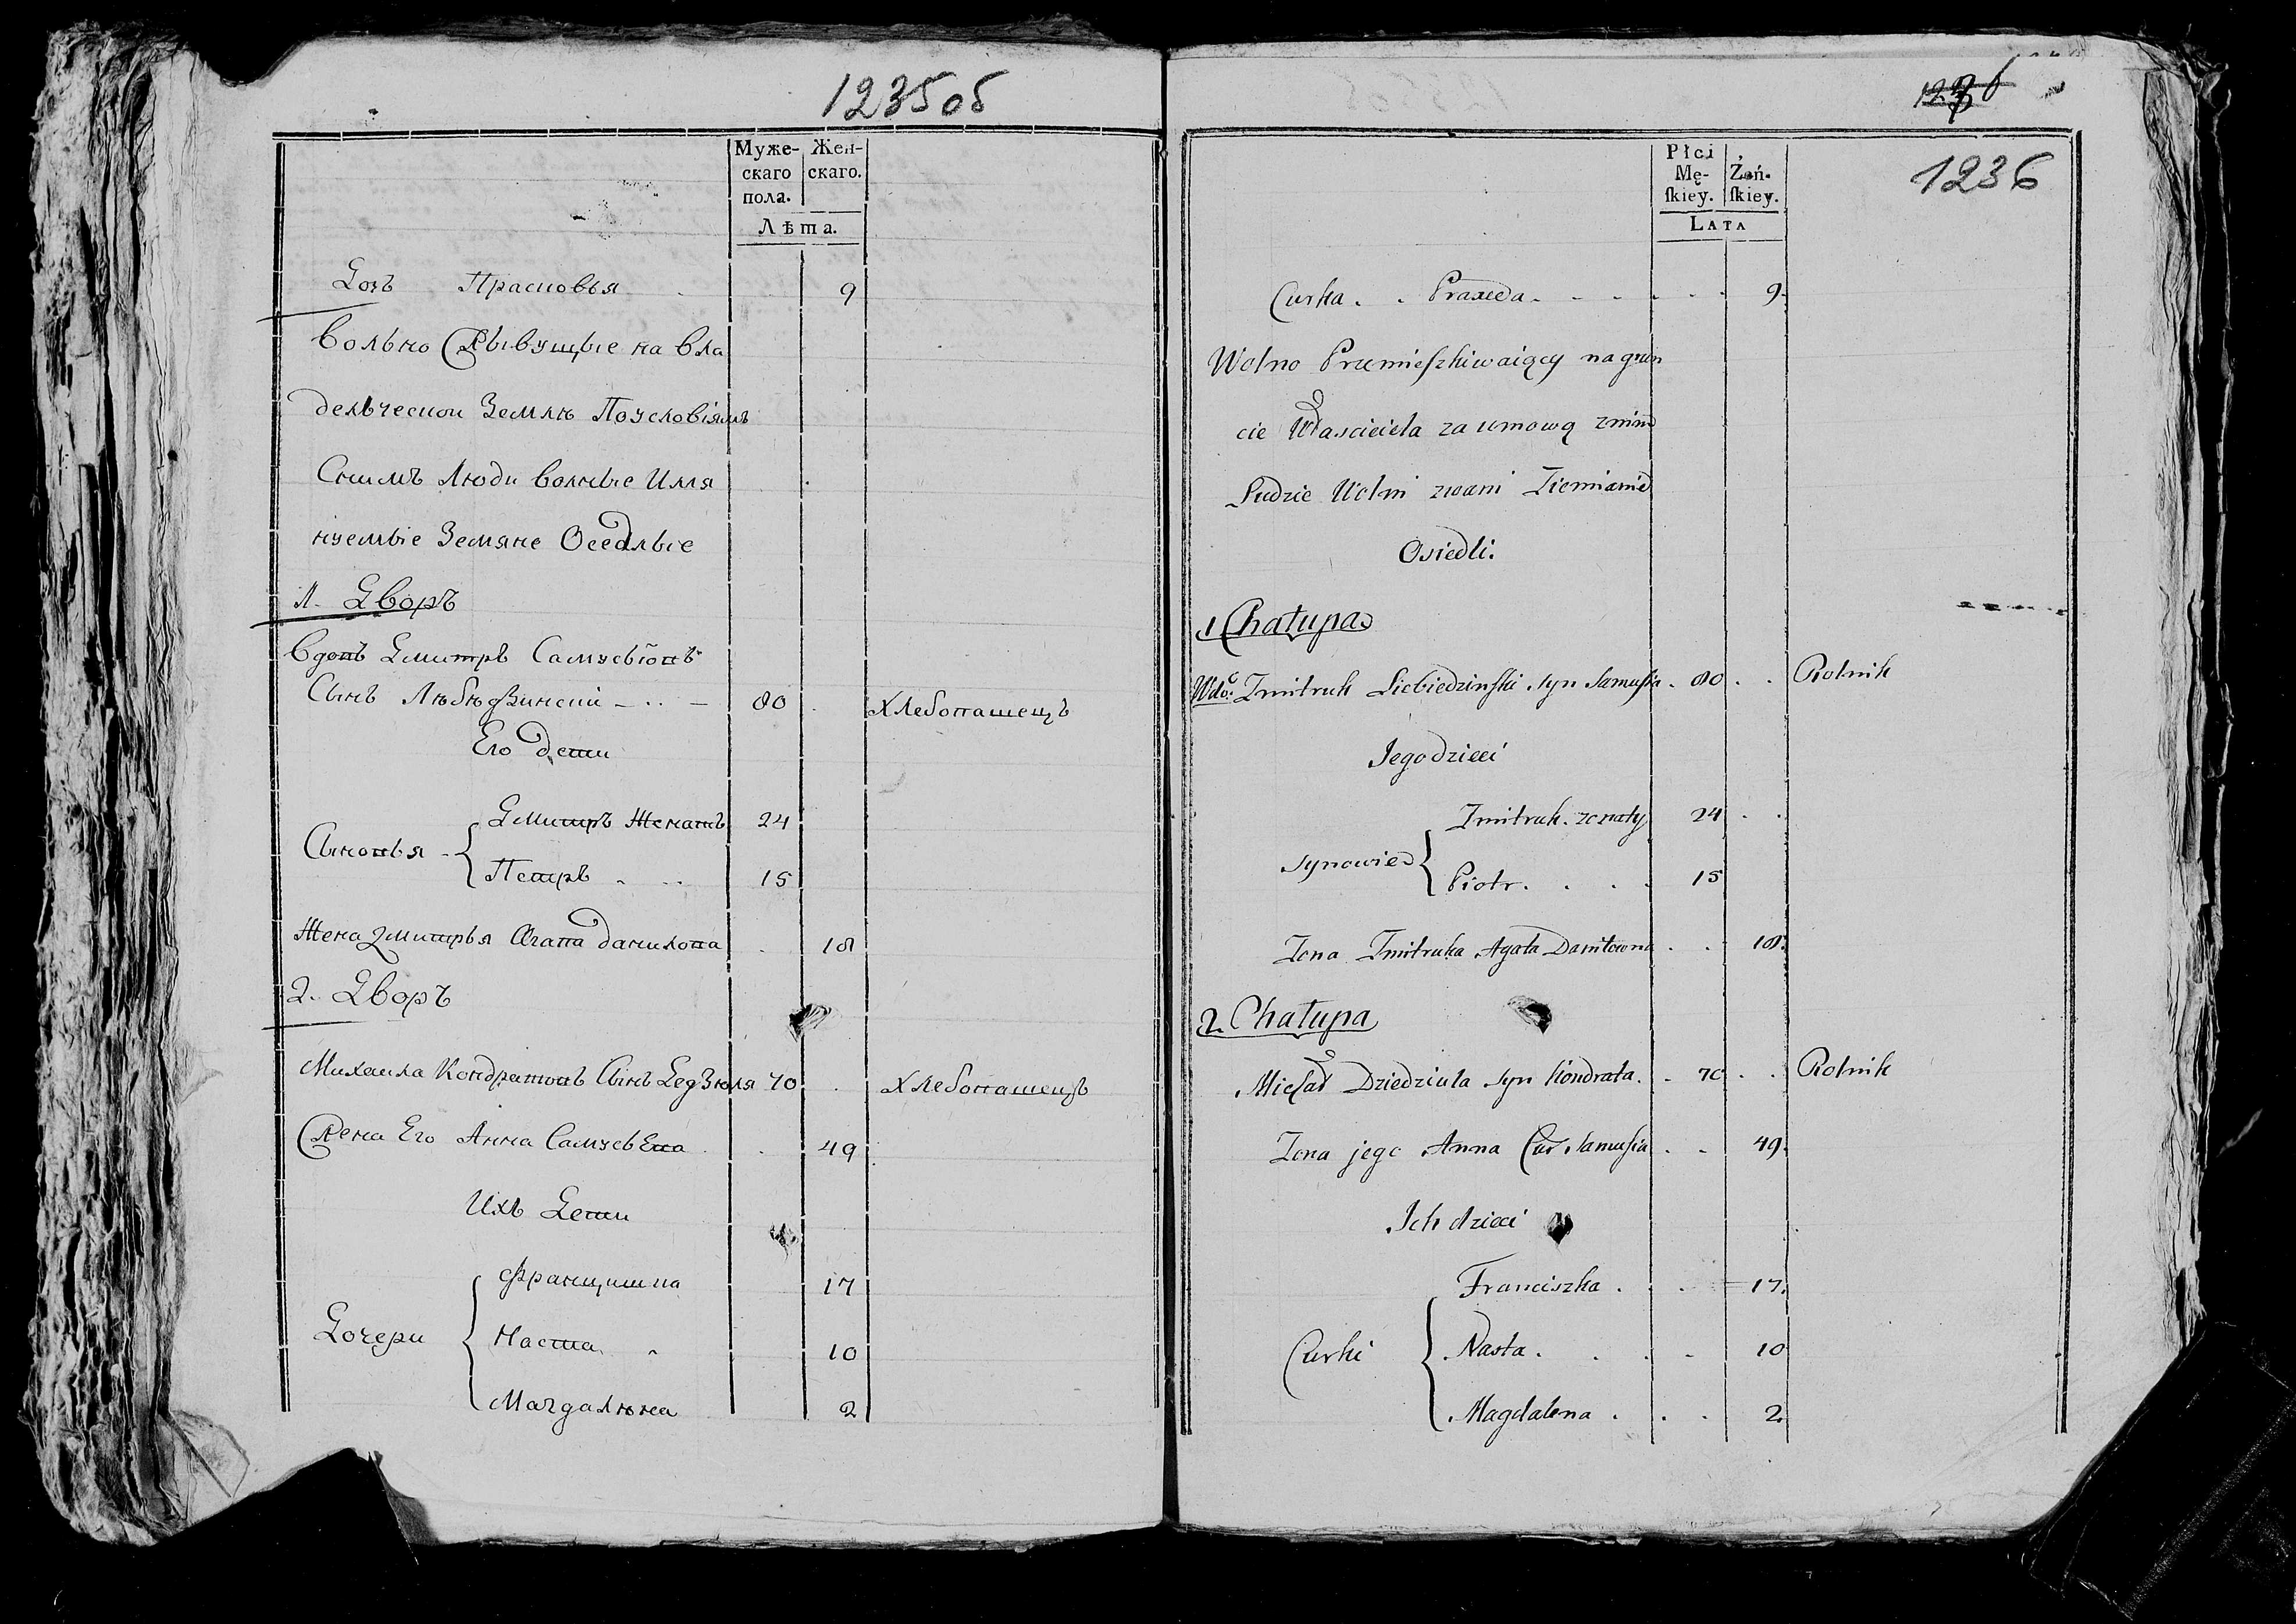 1235об
Муже- Жен-
скаго скаго.
пола.
Лѣта.
Дочь Прасковья 9
Вольно Живущые на Вла
дельческой Землѣ По условіямъ
Снимъ Люди Вольные Имя
нуемые Земяне Оседлые
1. Дворъ
Вдовъ Дмитръ Самусевіовъ
Сынъ Лѣбѣдзинскій 80 Хлебопашецъ
Его дети
Дмитръ Женатъ 24
Сыновья
Петръ 15
Жена Змитрья Агапа Данилова 18
2. Дворъ
Михаила Кондратовъ Сынъ Дедзюля 70 Хлебопашецъ
Жена Его Анна Самусевна 49
Ихъ Дети
Францишка 17
Дочери Наста 10
Магдалѣна 2
1236
Płci
Mę- Żeń-
ſkiey. ſkiey.
LATA
Curka Praxeda 9.
Wolno Przmieſzkiwaiący na grun
cie Włascieiela za umową znim
Ludzie Wolni zwani Ziemianie
Osiedli.
1 Chałupa
Wdo: Zmitruk Liebiedzinſki syn Samuſia 80 Rolnik
Jego dzieci
Zmitruk zonaty 24
Synowie
Piotr 15
Zona Zmitruka Agata Daniłowna 18.
2. Chałupa
Michał Dziedziula syn Kondrata 70 Rolnik
Zona jego Anna Cur Samuſia 49.
Ich dzieci
Franciszka 17.
Curki Nasta 10
Magdalena 2